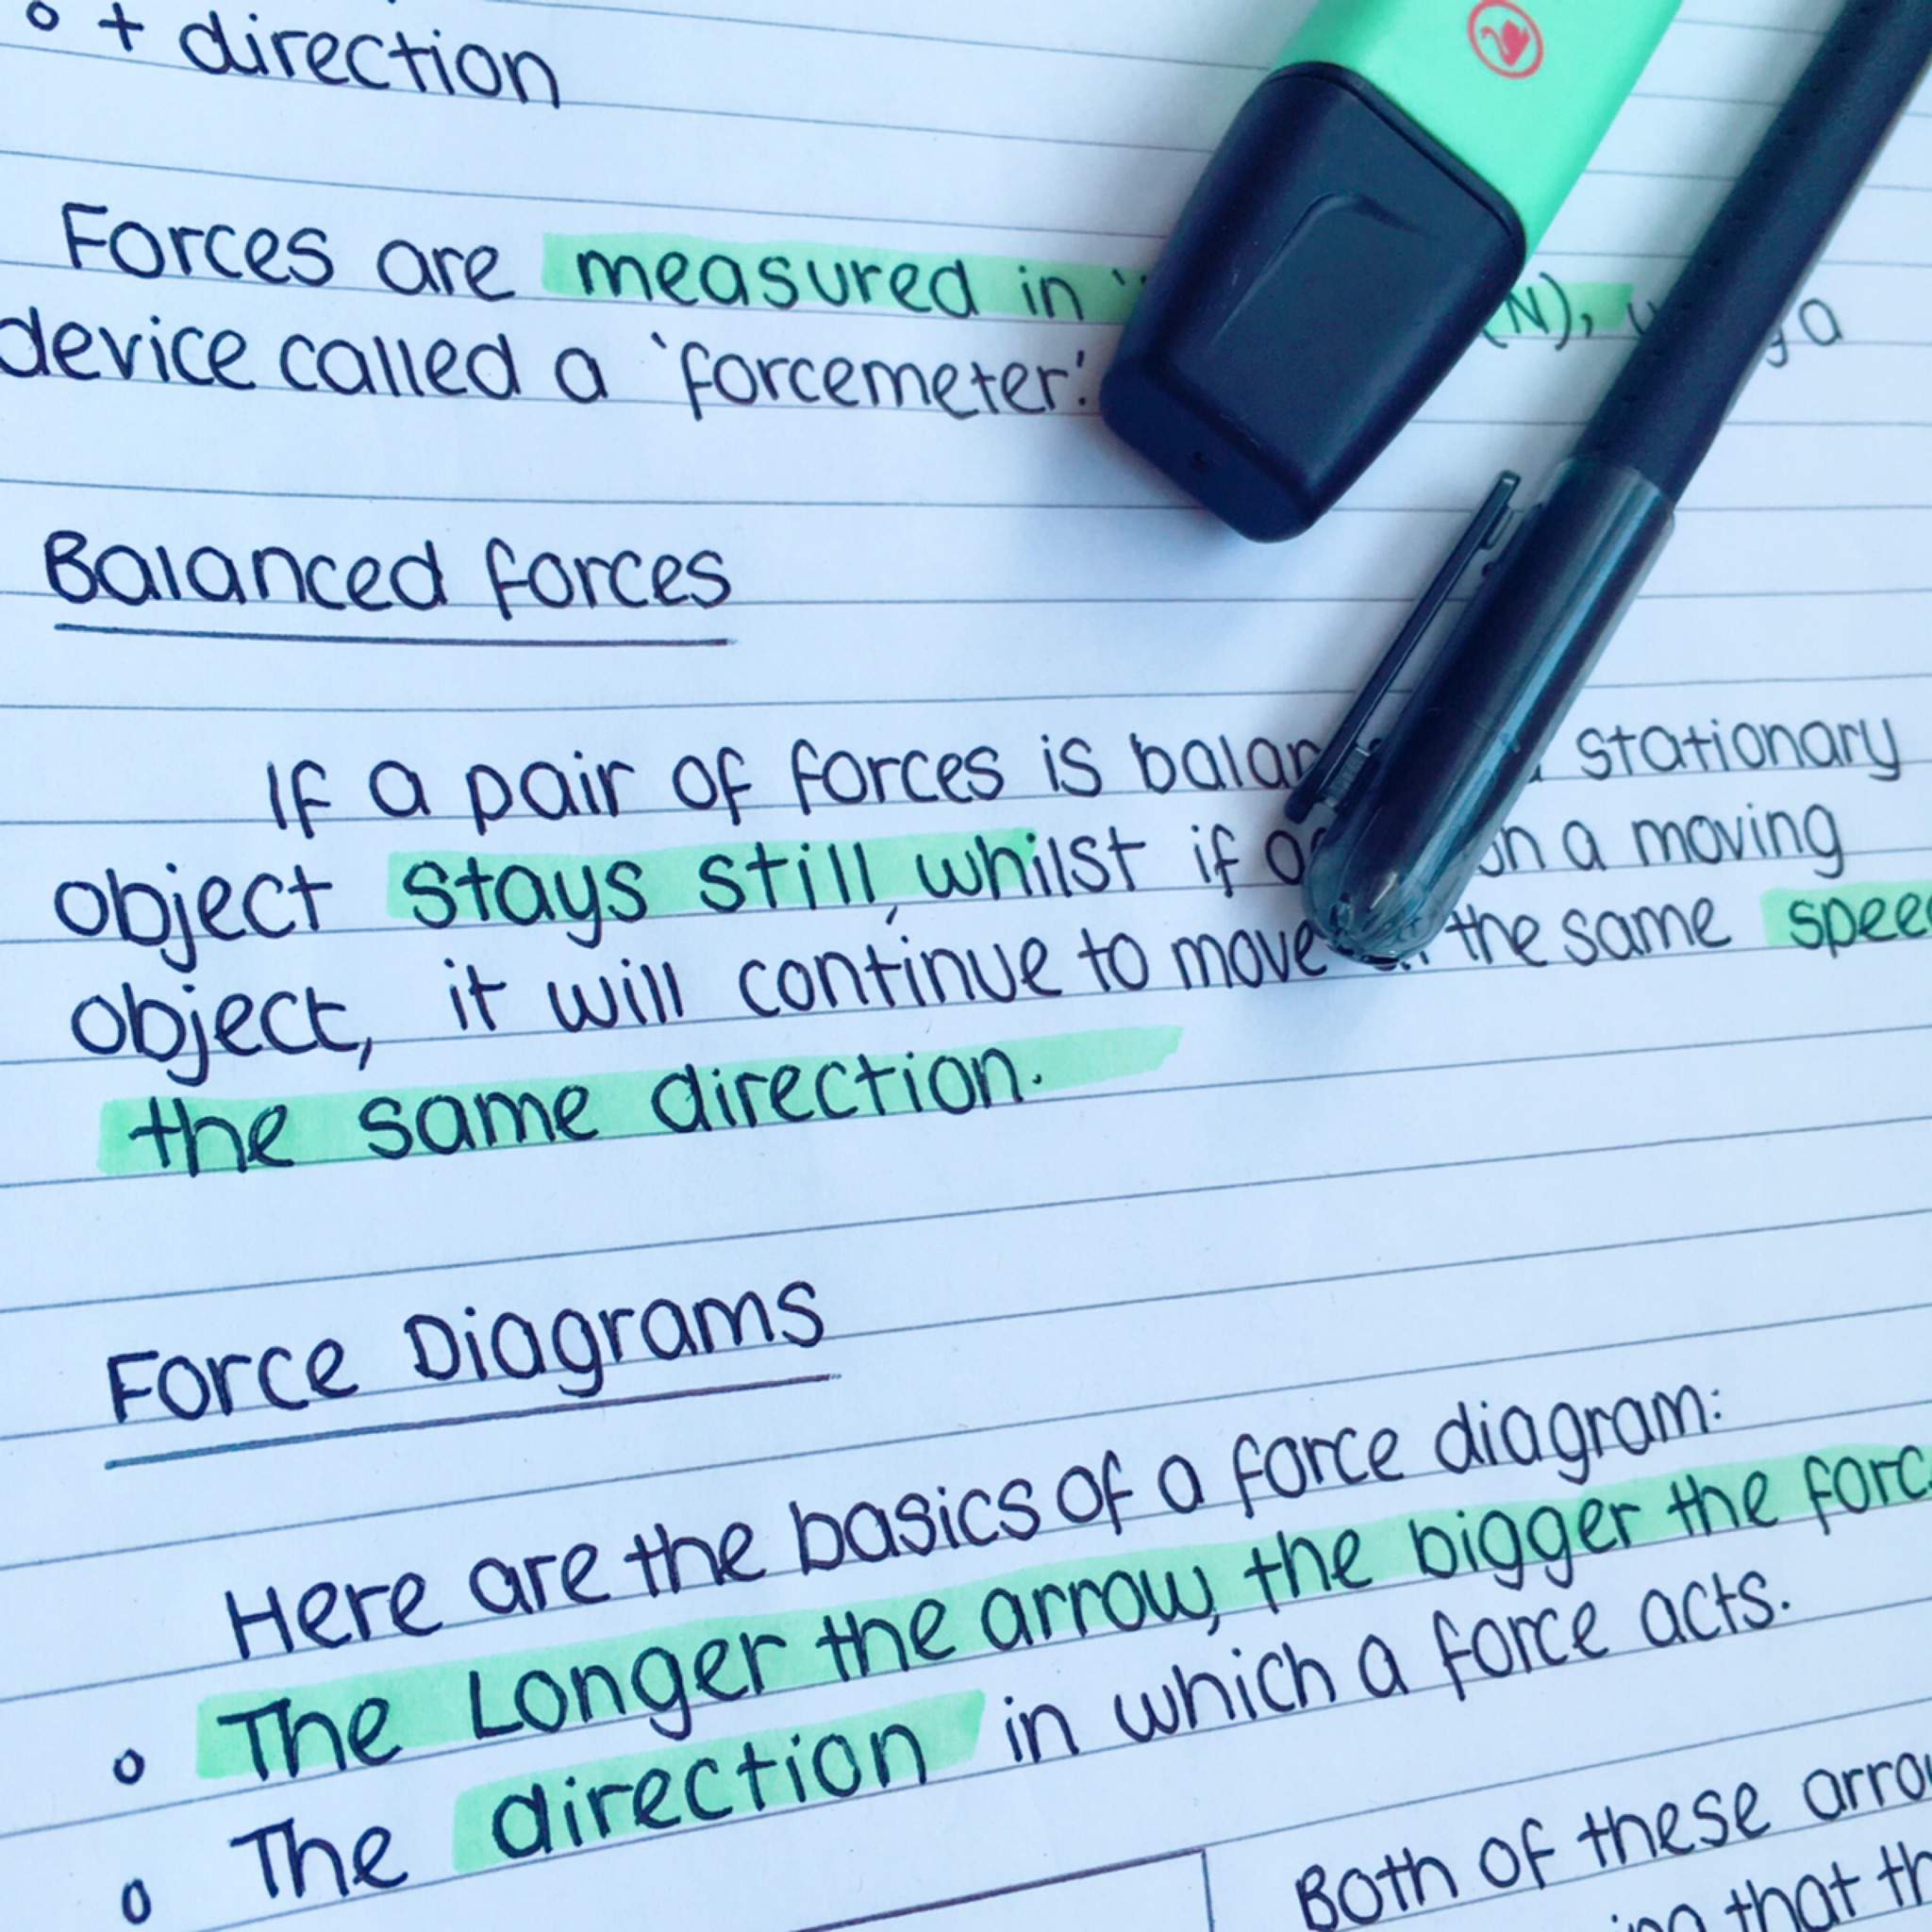 + direction
Forces are measured in (N), a
device called a 'forcemeter'.
Balanced forces
If a pair of forces is stationary
object stays still, whilst if a moving
object, it will continue to move the same
the same direction.
Force Diagrams
Here are the basics of a force diagram:
o The Longer the arrow, the bigger the
o The direction in which a force acts.
Both of these
that